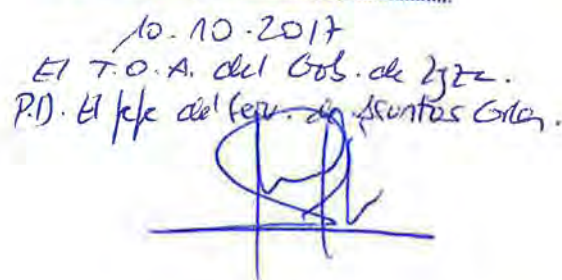 10-10-2017
El T.O.A. del Gob. de Zgza.
P.D. El Jefe del Serv. de Asuntos Grles.